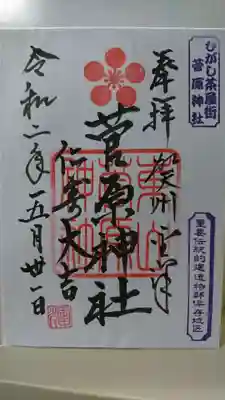 ひがし茶屋街
菅原神社
重要伝統的建造物群保存地区
奉拝
菅原神社
大吉
令和二年五月卅一日